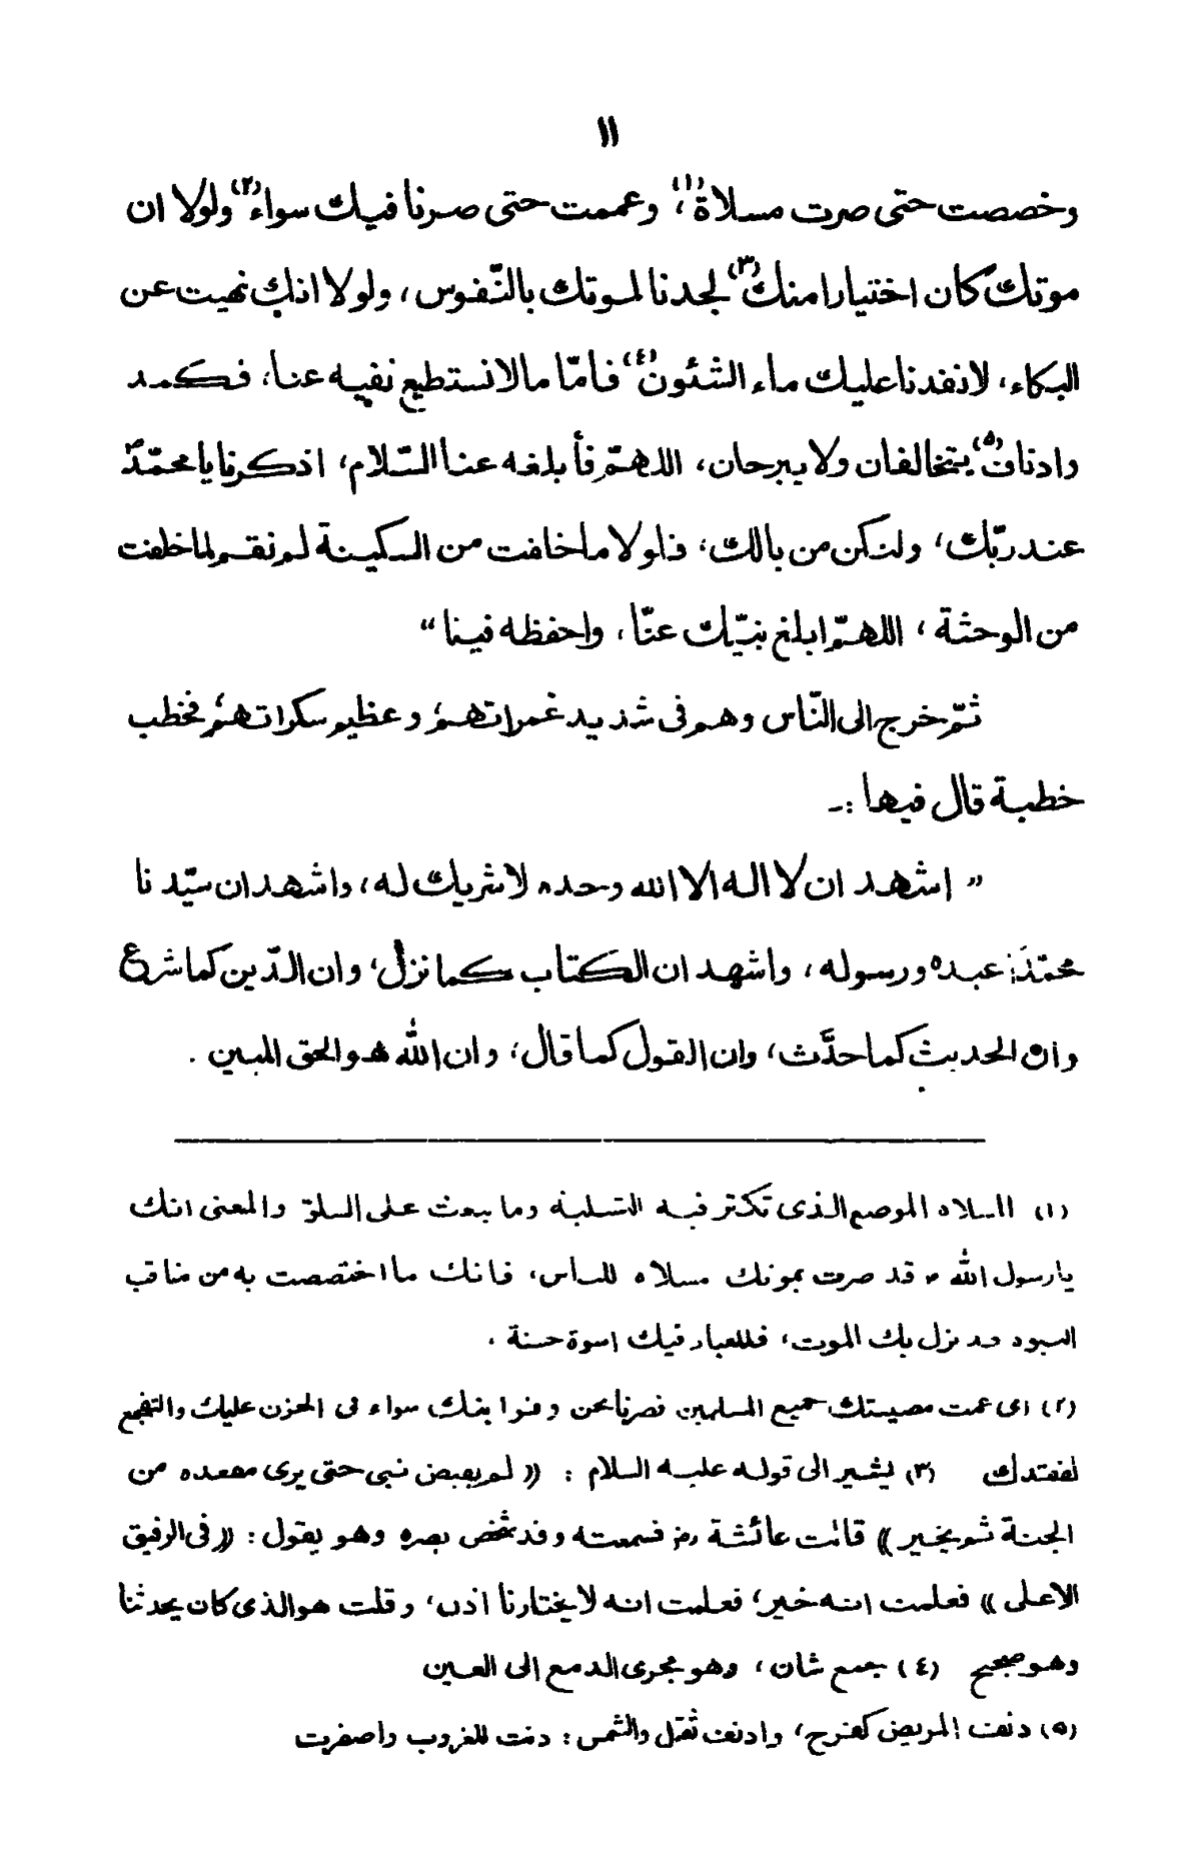 ١١
وخصصت حتى صرت مسلاة(١)، وعممت حتى صرنا فيك سواء(٢) ولولا ان
موتك كان اختيارا منك(٣) لجدنا لموتك بالنّفوس، ولولا انك نهيت عن
البكاء، لانفدنا عليك ماء الشئون(٤) فامّا ما لا نستطيع نفيه عنا، فكمد
وادناف(٥) يتخالفان ولا يبرحان، اللهمّ فأبلغه عنا السّلام، اذكرنا يا محمّد
عند ربّك، ولنكن من بالك، فلولا ما خلفت من السكينة لم نقم لما خلفت
من الوحشة، اللهمّ ابلغ نبيّك عنّا، واحفظه فينا"
ثمّ خرج الى النّاس وهم فى شديد غمراتهم، وعظيم سكراتهم، فخطب
خطبة قال فيها :-
" اشهد ان لا اله الا الله وحده لا شريك له، واشهد ان سيّدنا
محمّدا عبده ورسوله، واشهد ان الكتاب كما نزل، وان الدّين كما شرع
وان الحديث كما حدّث، وان القول كما قال، وان الله هو الحق المبين .
(١) المسلاه الموضع الذى تكثر فيه التسلية وما يبعث على السلو والمعنى انك
يا رسول الله قد صرت بموتك مسلاه للناس، فانك ما اختصصت به من مناقب
النبوه قد نزل بك الموت، فللعباد فيك اسوة حسنة .
(٢) اى عمت مصيبتك جميع المسلمين فصرنا نحن و بك سواء فى الحزن عليك والتفجع
لفقدك (٣) يشير الى قوله عليه السلام : (( لم يقبض نبى حتى يرى مقعده من
الجنة ثم يخير )) قالت عائشة رض فسمعته وقد شخص بصره وهو يقول : (( فى الرفيق
الاعلى )) فعلمت انه خير، فعلمت انه لا يختارنا اذن، وقلت هو الذى كان يحدثنا
وهو صحيح (٤) جمع شان، وهو مجرى الدمع الى العين
(٥) دنف المريض كفرح، وادنف ثقل والشمس : دنت للغروب واصفرت